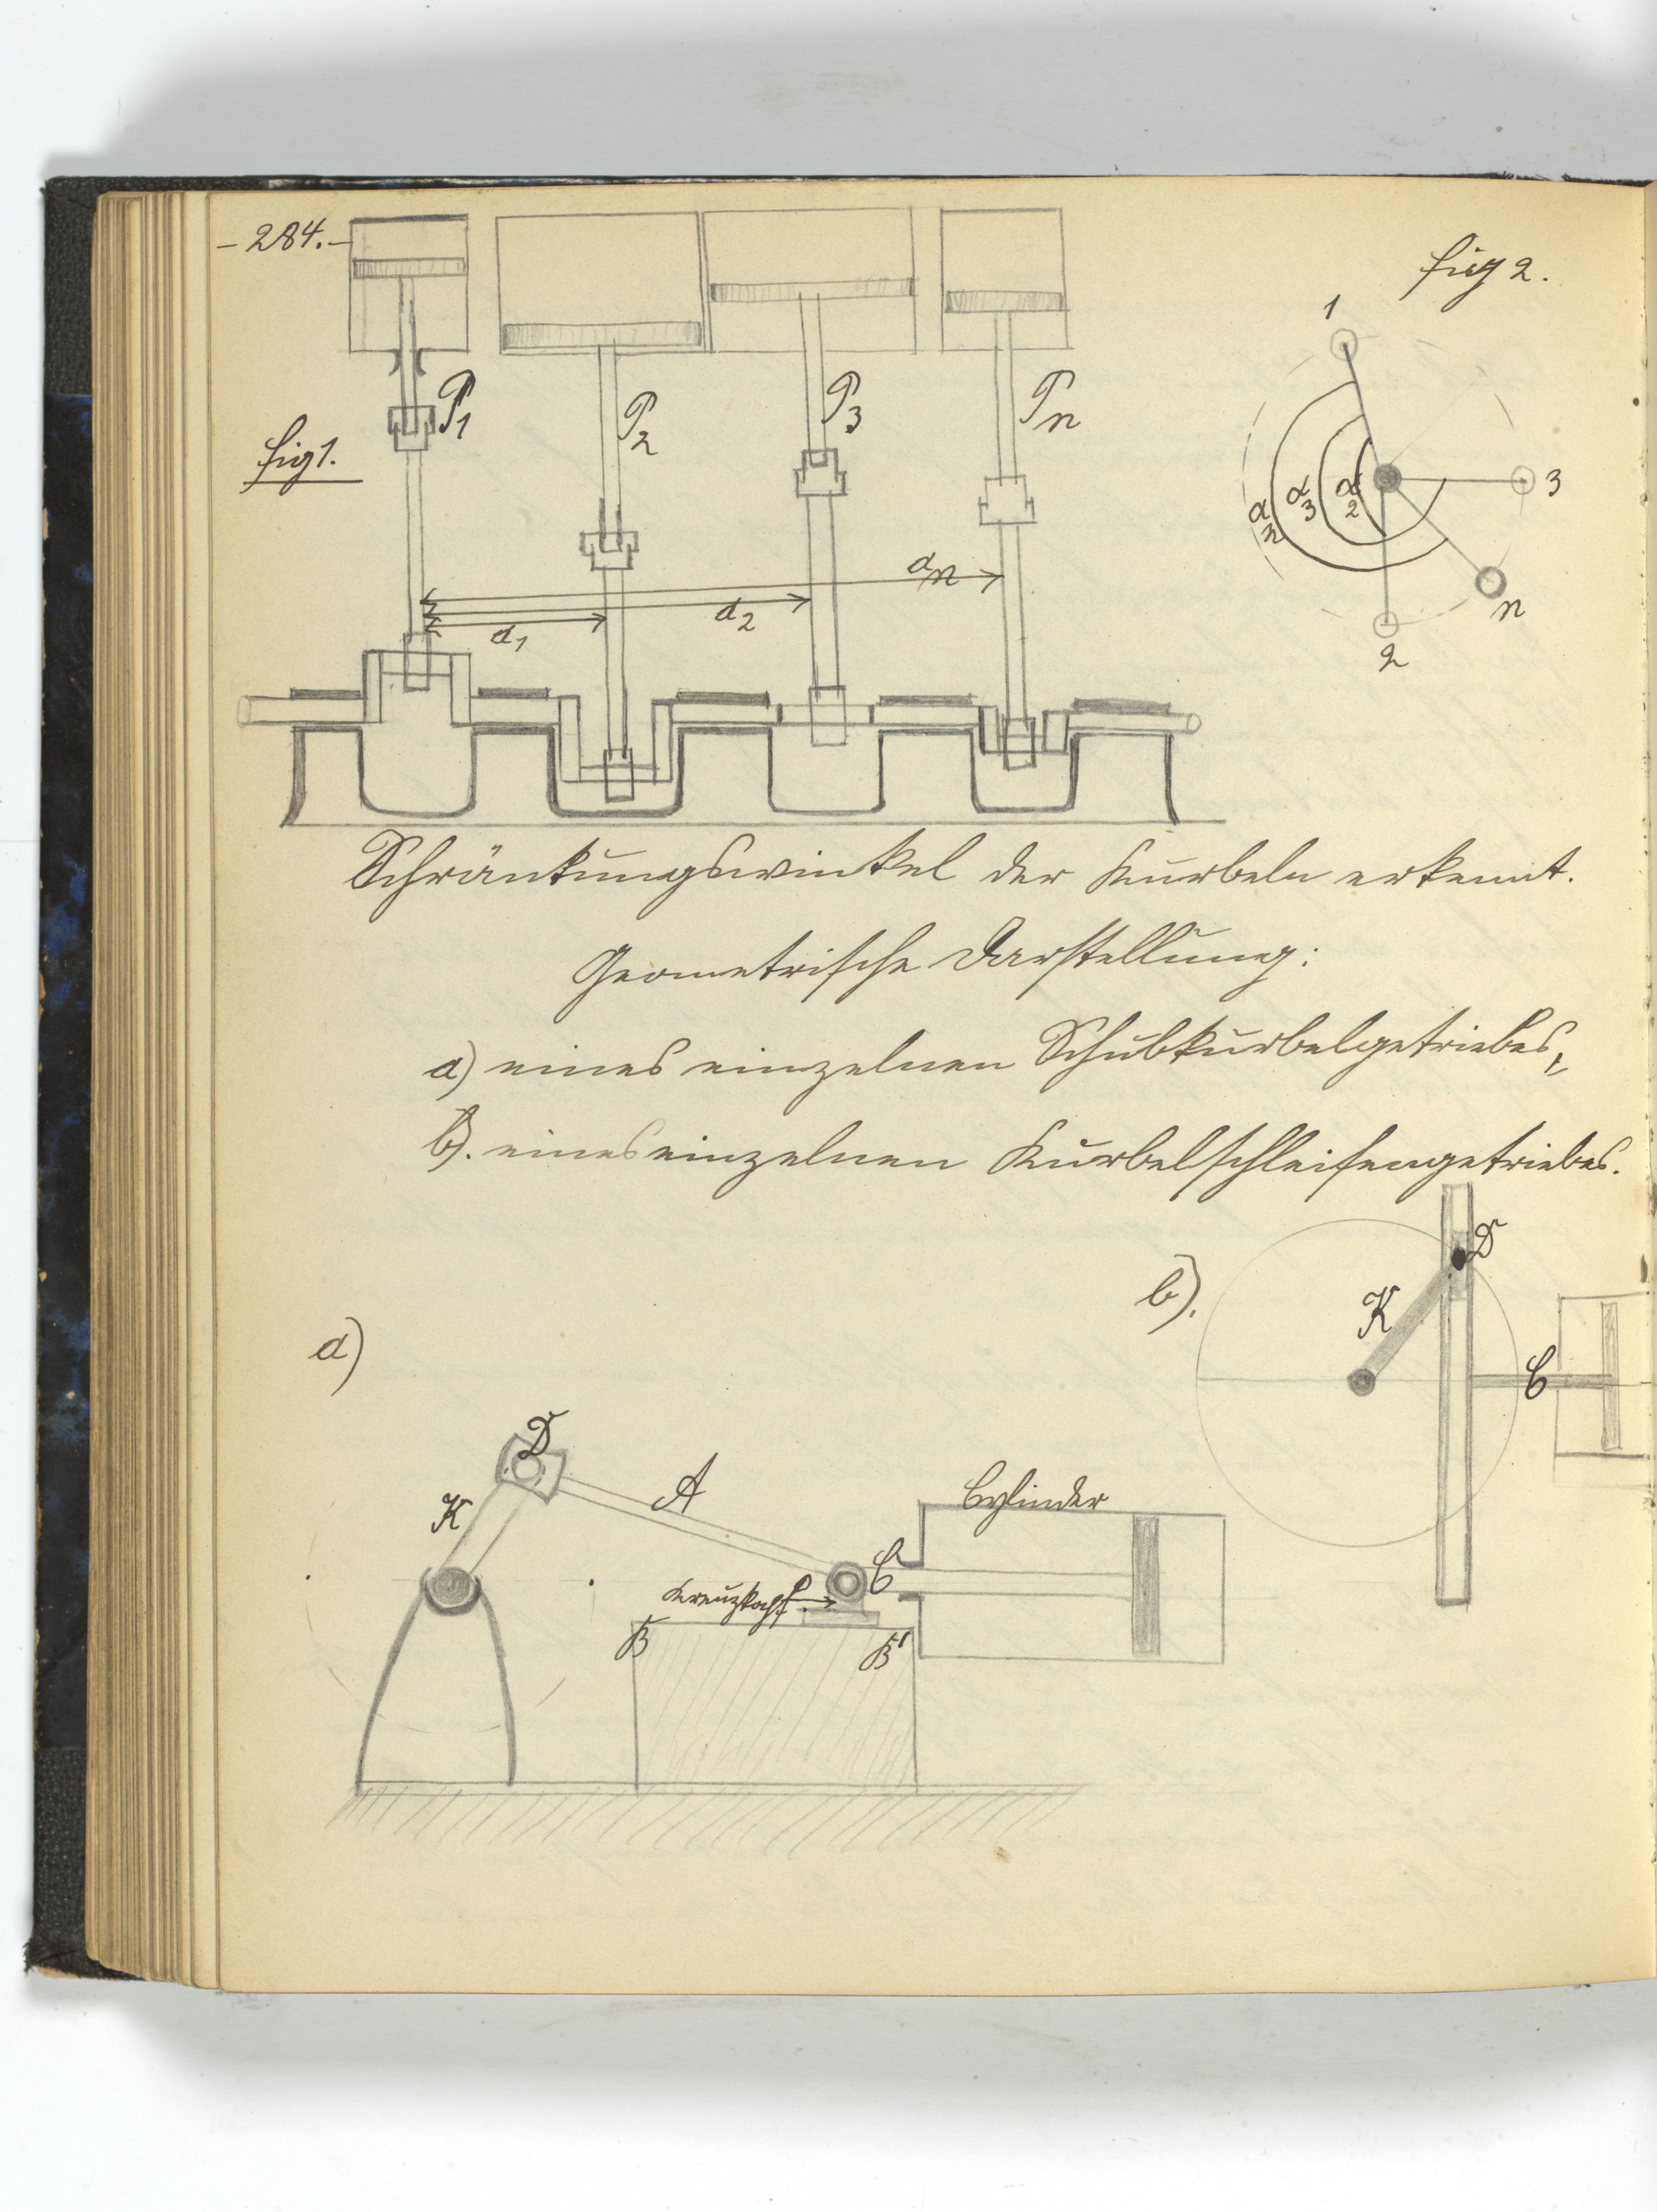 - 284. -
fig 2.
1
P1
P2
P3
Pn
fig 1.
3
α2
α3
αn
an
a2
a1
n
2
Schränkungswinkel der Kurbeln erkennt.
Geometrische Darstellung:
a) eines einzelnen Schubkurbelgetriebes,
b). eines einzelnen Kurbelschleifengetriebes.
D
b).
K
a)
C
D
A
Cylinder
K
C
Kreuzkopf
B
B'